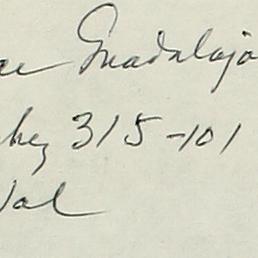 Guadalaja
hez 315-101
Jal